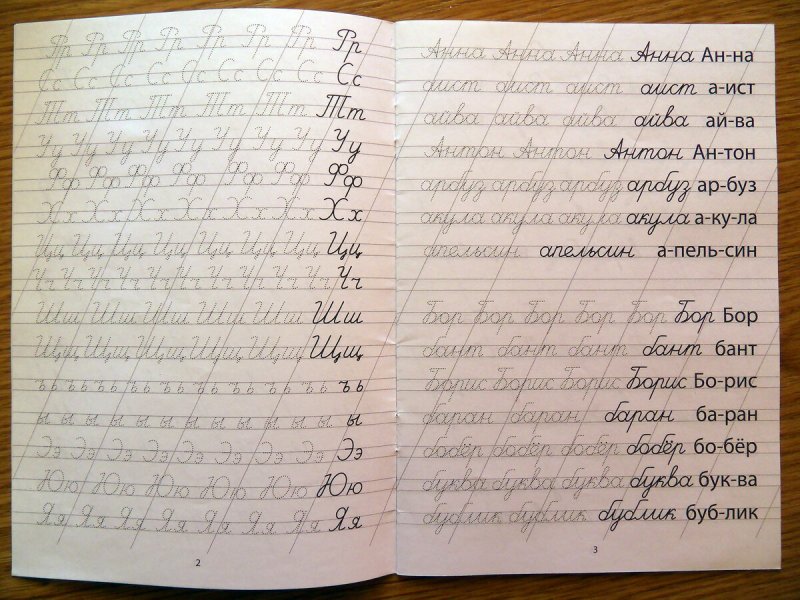 Рр Рр Рр Рр Рр Рр Рр Рр
Сс Сс Сс Сс Сс Сс Сс Сс Сс
Тт Тт Тт Тт Тт Тт
Уу Уу Уу Уу Уу Уу Уу Уу Уу
Фф Фф Фф Фф Фф Фф Фф
Хх Хх Хх Хх Хх Хх Хх Хх Хх
Цц Цц Цц Цц Цц Цц Цц Цц
Чч Чч Чч Чч Чч Чч Чч Чч Чч Чч Чч
Шш Шш Шш Шш Шш Шш
Щщ Щщ Щщ Щщ Щщ Щщ
ъь ъь ъь ъь ъь ъь ъь ъь ъь ъь ъь
ы ы ы ы ы ы ы ы ы ы ы
Ээ Ээ Ээ Ээ Ээ Ээ Ээ Ээ Ээ
Юю Юю Юю Юю Юю Юю
Яя Яя Яя Яя Яя Яя Яя Яя
2
Анна Анна Анна Анна Ан-на
аист аист аист аист а-ист
айва айва айва айва ай-ва
Антон Антон Антон Ан-тон
арбуз арбуз арбуз арбуз ар-буз
акула акула акула акула а-ку-ла
апельсин апельсин а-пель-син
Бор Бор Бор Бор Бор Бор Бор
бант бант бант бант бант
Борис Борис Борис Борис Бо-рис
баран баран баран ба-ран
бобёр бобёр бобёр бобёр бо-бёр
буква буква буква буква бук-ва
бублик бублик бублик буб-лик
3